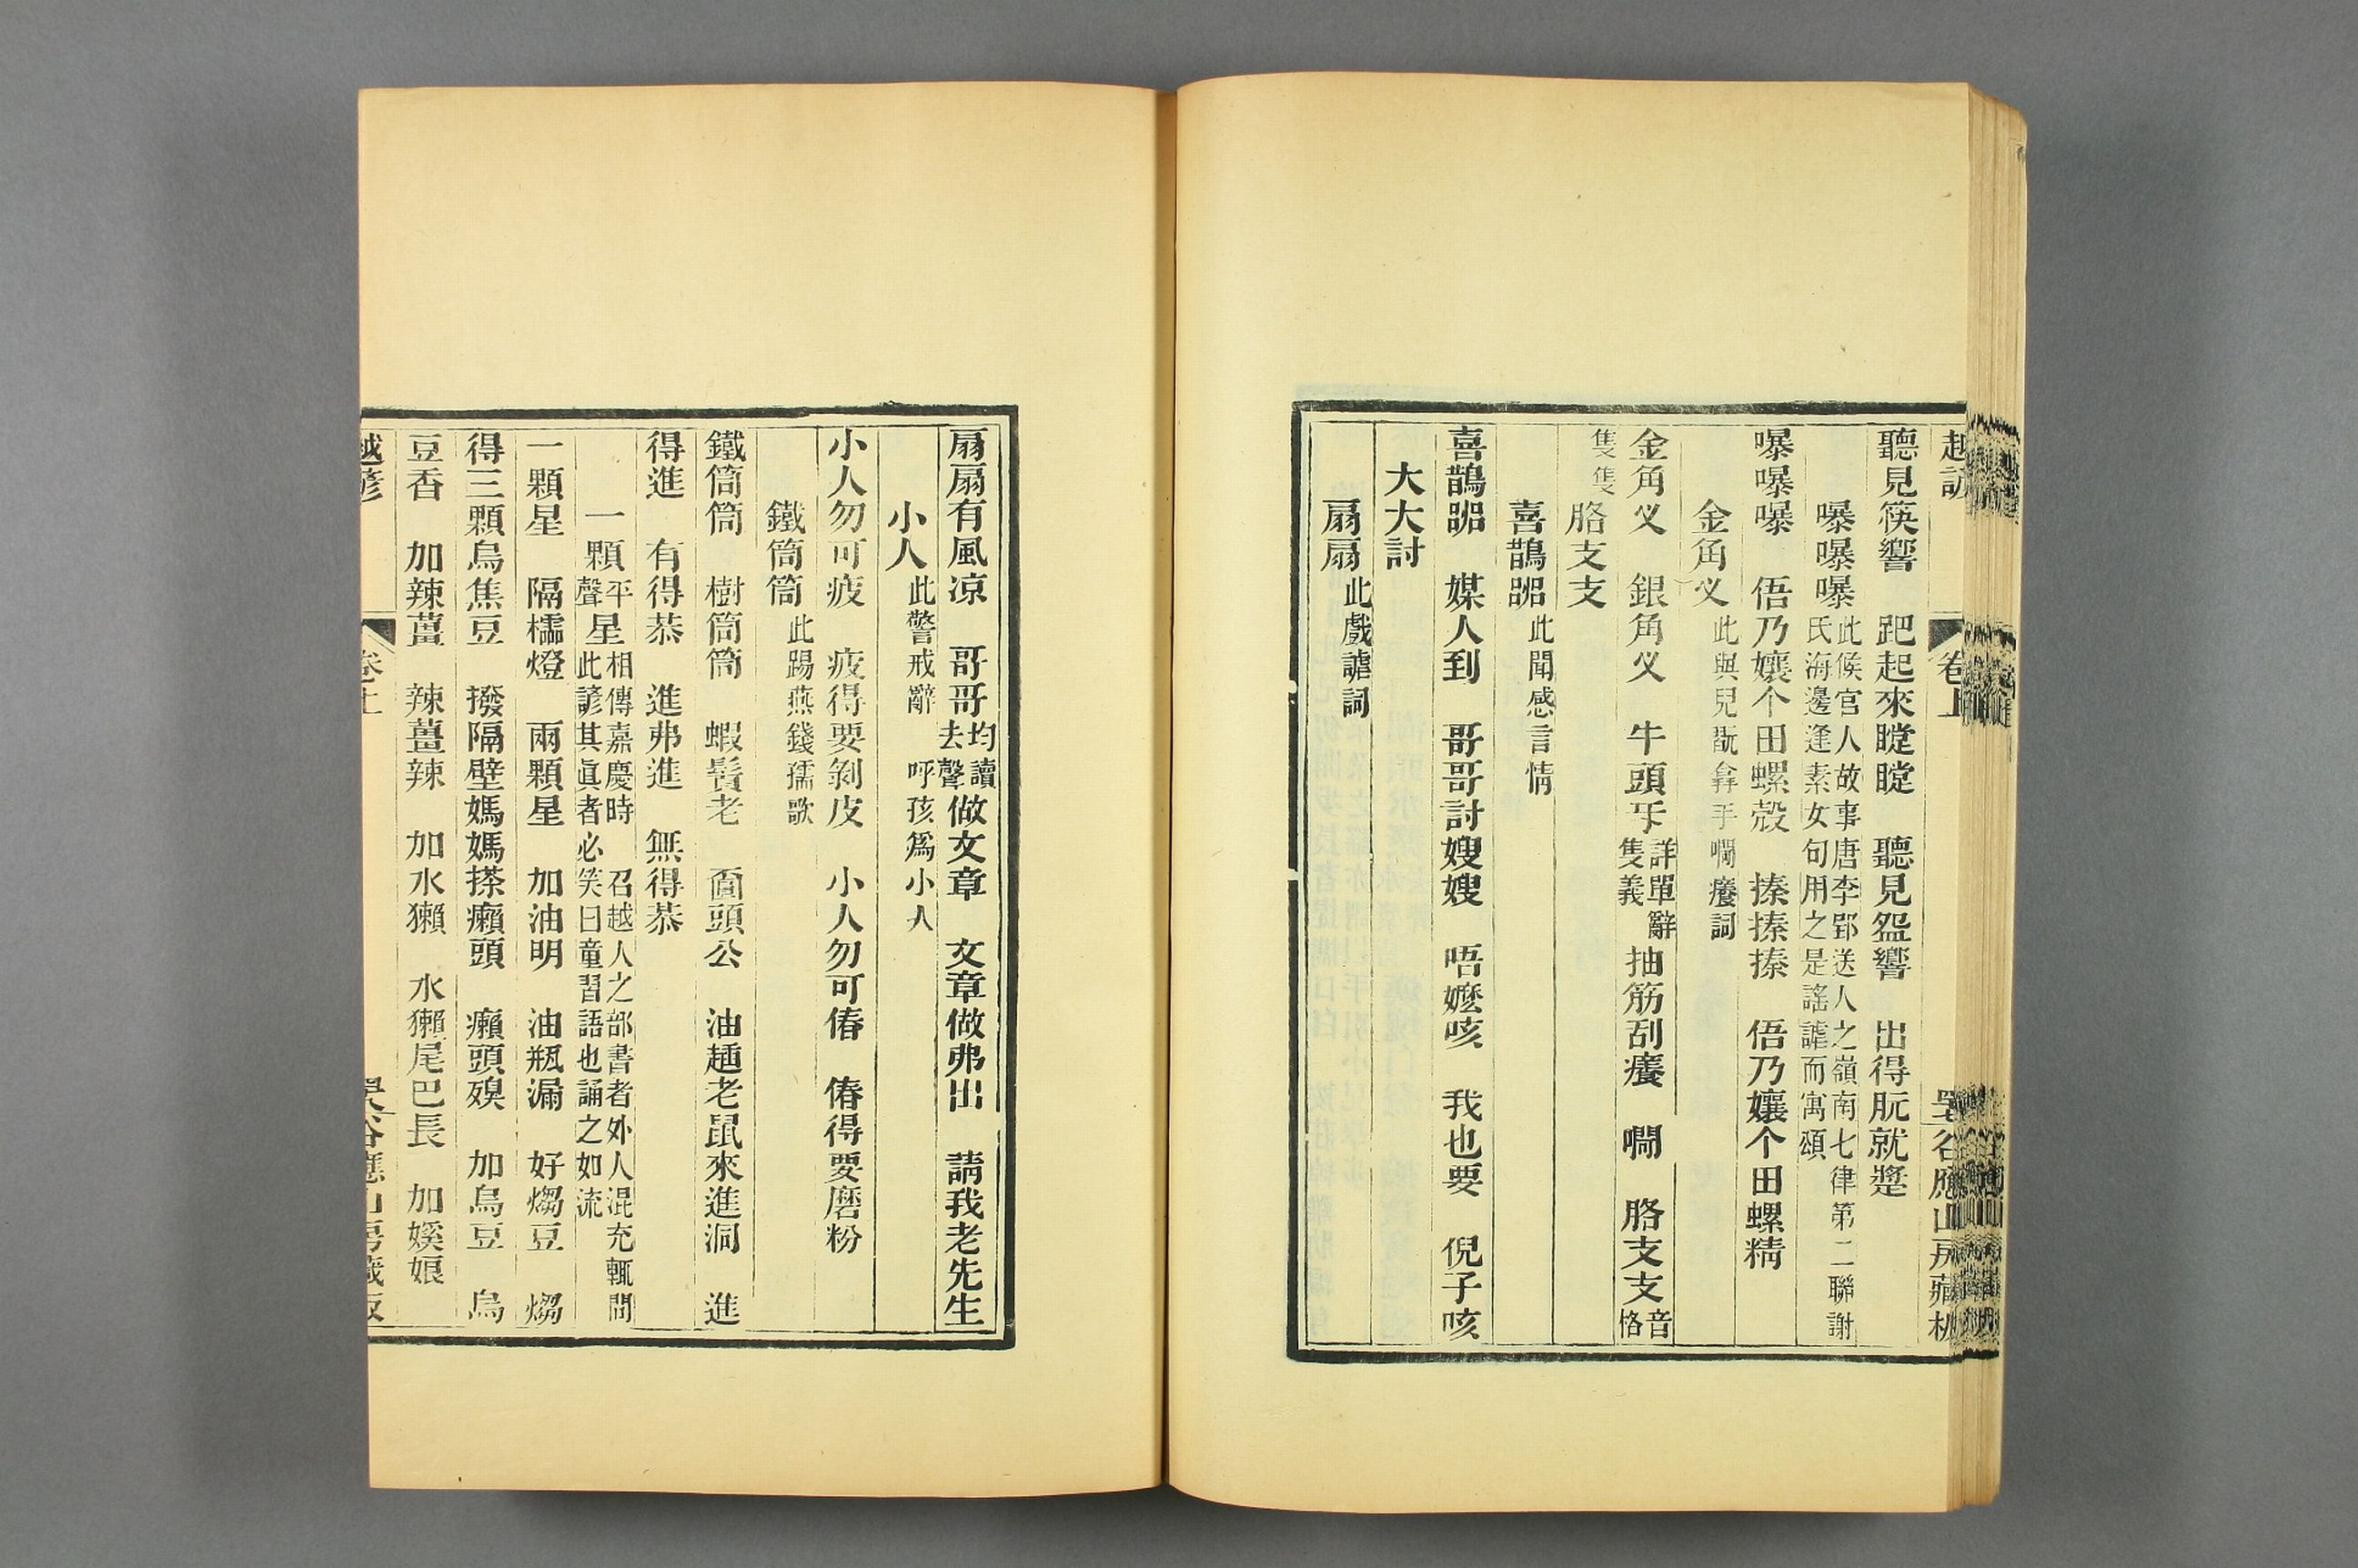 越諺 卷上
聽見筷響 跁起來瞠瞠 聽見盌響 出得朊就蹔
曝曝曝 此候官人故事唐李郢送人之嶺南七律第二聯謝氏海邊逢素女句用之是謠謔而寓頌
曝曝曝 俉乃孃个田螺殼 搸搸搸 俉乃孃个田螺精
金角㸚 此與兒翫弆手㘎癢詞
金角㸚 銀角㸚 牛頭㸦 詳單辭隻義 抽筋刮癢 㘎 胳支支 音格
隻隻 胳支支
喜鵲 此聞感言情
喜鵲 媒人到 哥哥討嫂嫂 唔嬷咳 我也要 倪子咳
大大討
扇扇 此戲謔詞
扇扇有風凉 哥哥 均讀去聲 做文章 文章做弗出 請我老先生
小人 此警戒辭 呼孩爲小人
小人勿可疲 疲得要剝皮 小人勿可偆 偆得要磨粉
鐵筒筒 此踢燕錢孺歌
鐵筒筒 樹筒筒 蝦鬚老 圙頭公 油䞬老鼠來進洞 進
得進 有得恭 進弗進 無得恭
一顆 平聲 星 相傳嘉慶時 召越人之部書者外人混充輒問此諺其眞者必笑曰童習語也誦之如流
一顆星 隔檽燈 兩顆星 加油明 油瓶漏 好煼豆 煼
得三顆烏焦豆 撥隔壁媽媽搽癩頭 癩頭殠 加烏豆 烏
豆香 加辣薑 辣薑辣 加水獺 水獺尾巴長 加嫨娘
越諺 卷上